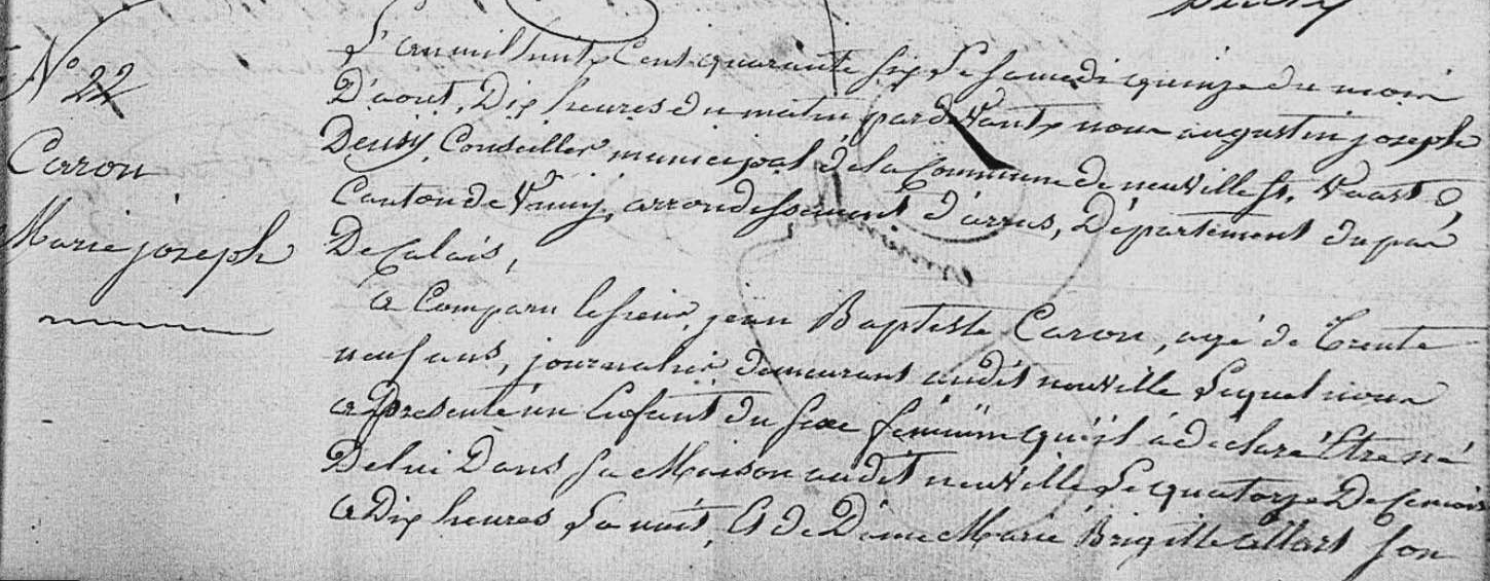 N° 22
Carron
Marie joseph
L'an mil huit Cent quarante six Le samedi quinze du mois
D'aout, Dix heures du matin par dVant nous augustin joseph
Deusy, Conseiller municipal de la Commune de neuville St. Vaast
Canton de Vimy, arrondissement d'arras, Département du pas
De Calais,
a Comparu le sieur jean Baptiste Caron, agé de trente
neuf ans, journalier demeurant audit neuville Lequel nous
a presenté un Enfant du sexe féminin qu'il a déclaré Etre né
De lui Dans sa Maison audit neuville Le quatorze De Ce mois
a Dix heures La nuit, Et de Dame Marie Brigitte allart son